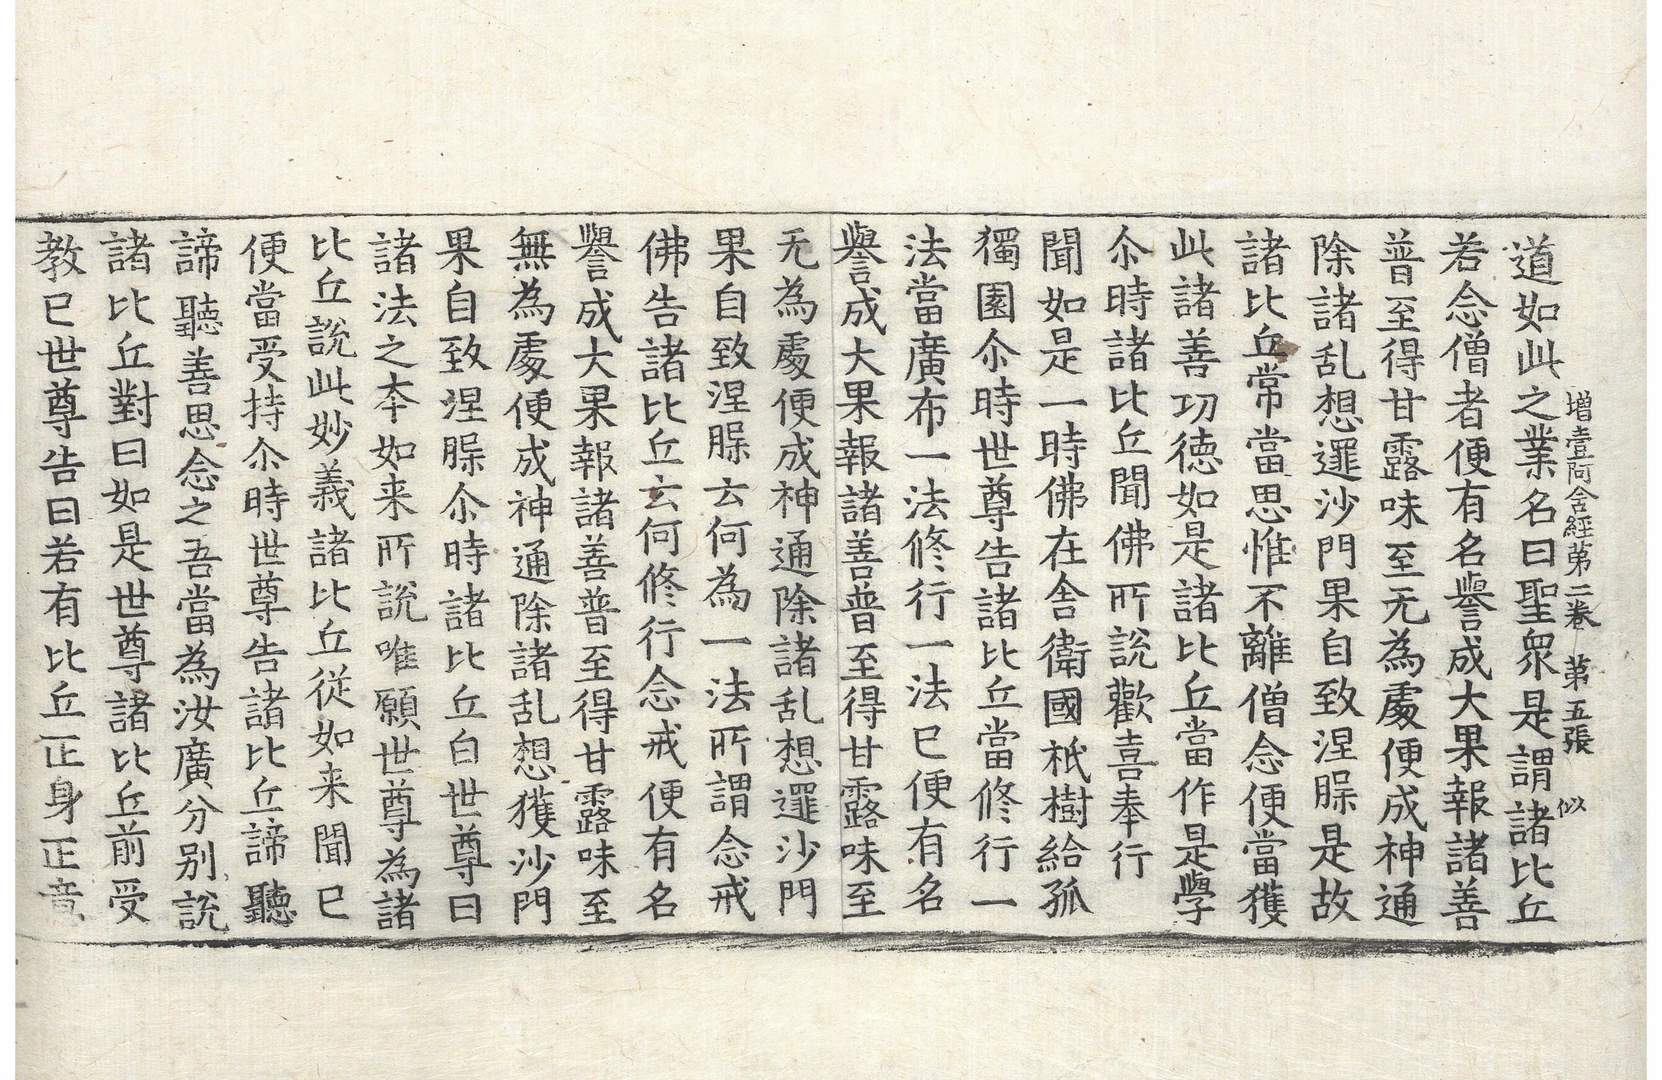 增壹阿含經第二卷 第五張 似
道如此之業名曰聖衆是謂諸比丘
若念僧者便有名譽成大果報諸善
普至得甘露味至无為處便成神通
除諸乱想逮沙門果自致涅槃是故
諸比丘常當思惟不離僧念便當獲
此諸善功德如是諸比丘當作是學
尒時諸比丘聞佛所說歡喜奉行
聞如是一時佛在舍衛國祇樹給孤
獨園尒時世尊告諸比丘當修行一
法當廣布一法修行一法已便有名
譽成大果報諸善普至得甘露味至
无為處便成神通除諸乱想逮沙門
果自致涅槃云何為一法所謂念戒
佛告諸比丘云何修行念戒便有名
譽成大果報諸善普至得甘露味至
無為處便成神通除諸乱想獲沙門
果自致涅槃尒時諸比丘白世尊曰
諸法之本如来所說唯願世尊為諸
比丘說此妙義諸比丘從如来聞已
便當受持尒時世尊告諸比丘諦聽
諦聽善思念之吾當為汝廣分別說
諸比丘對曰如是世尊諸比丘前受
教已世尊告曰若有比丘正身正意